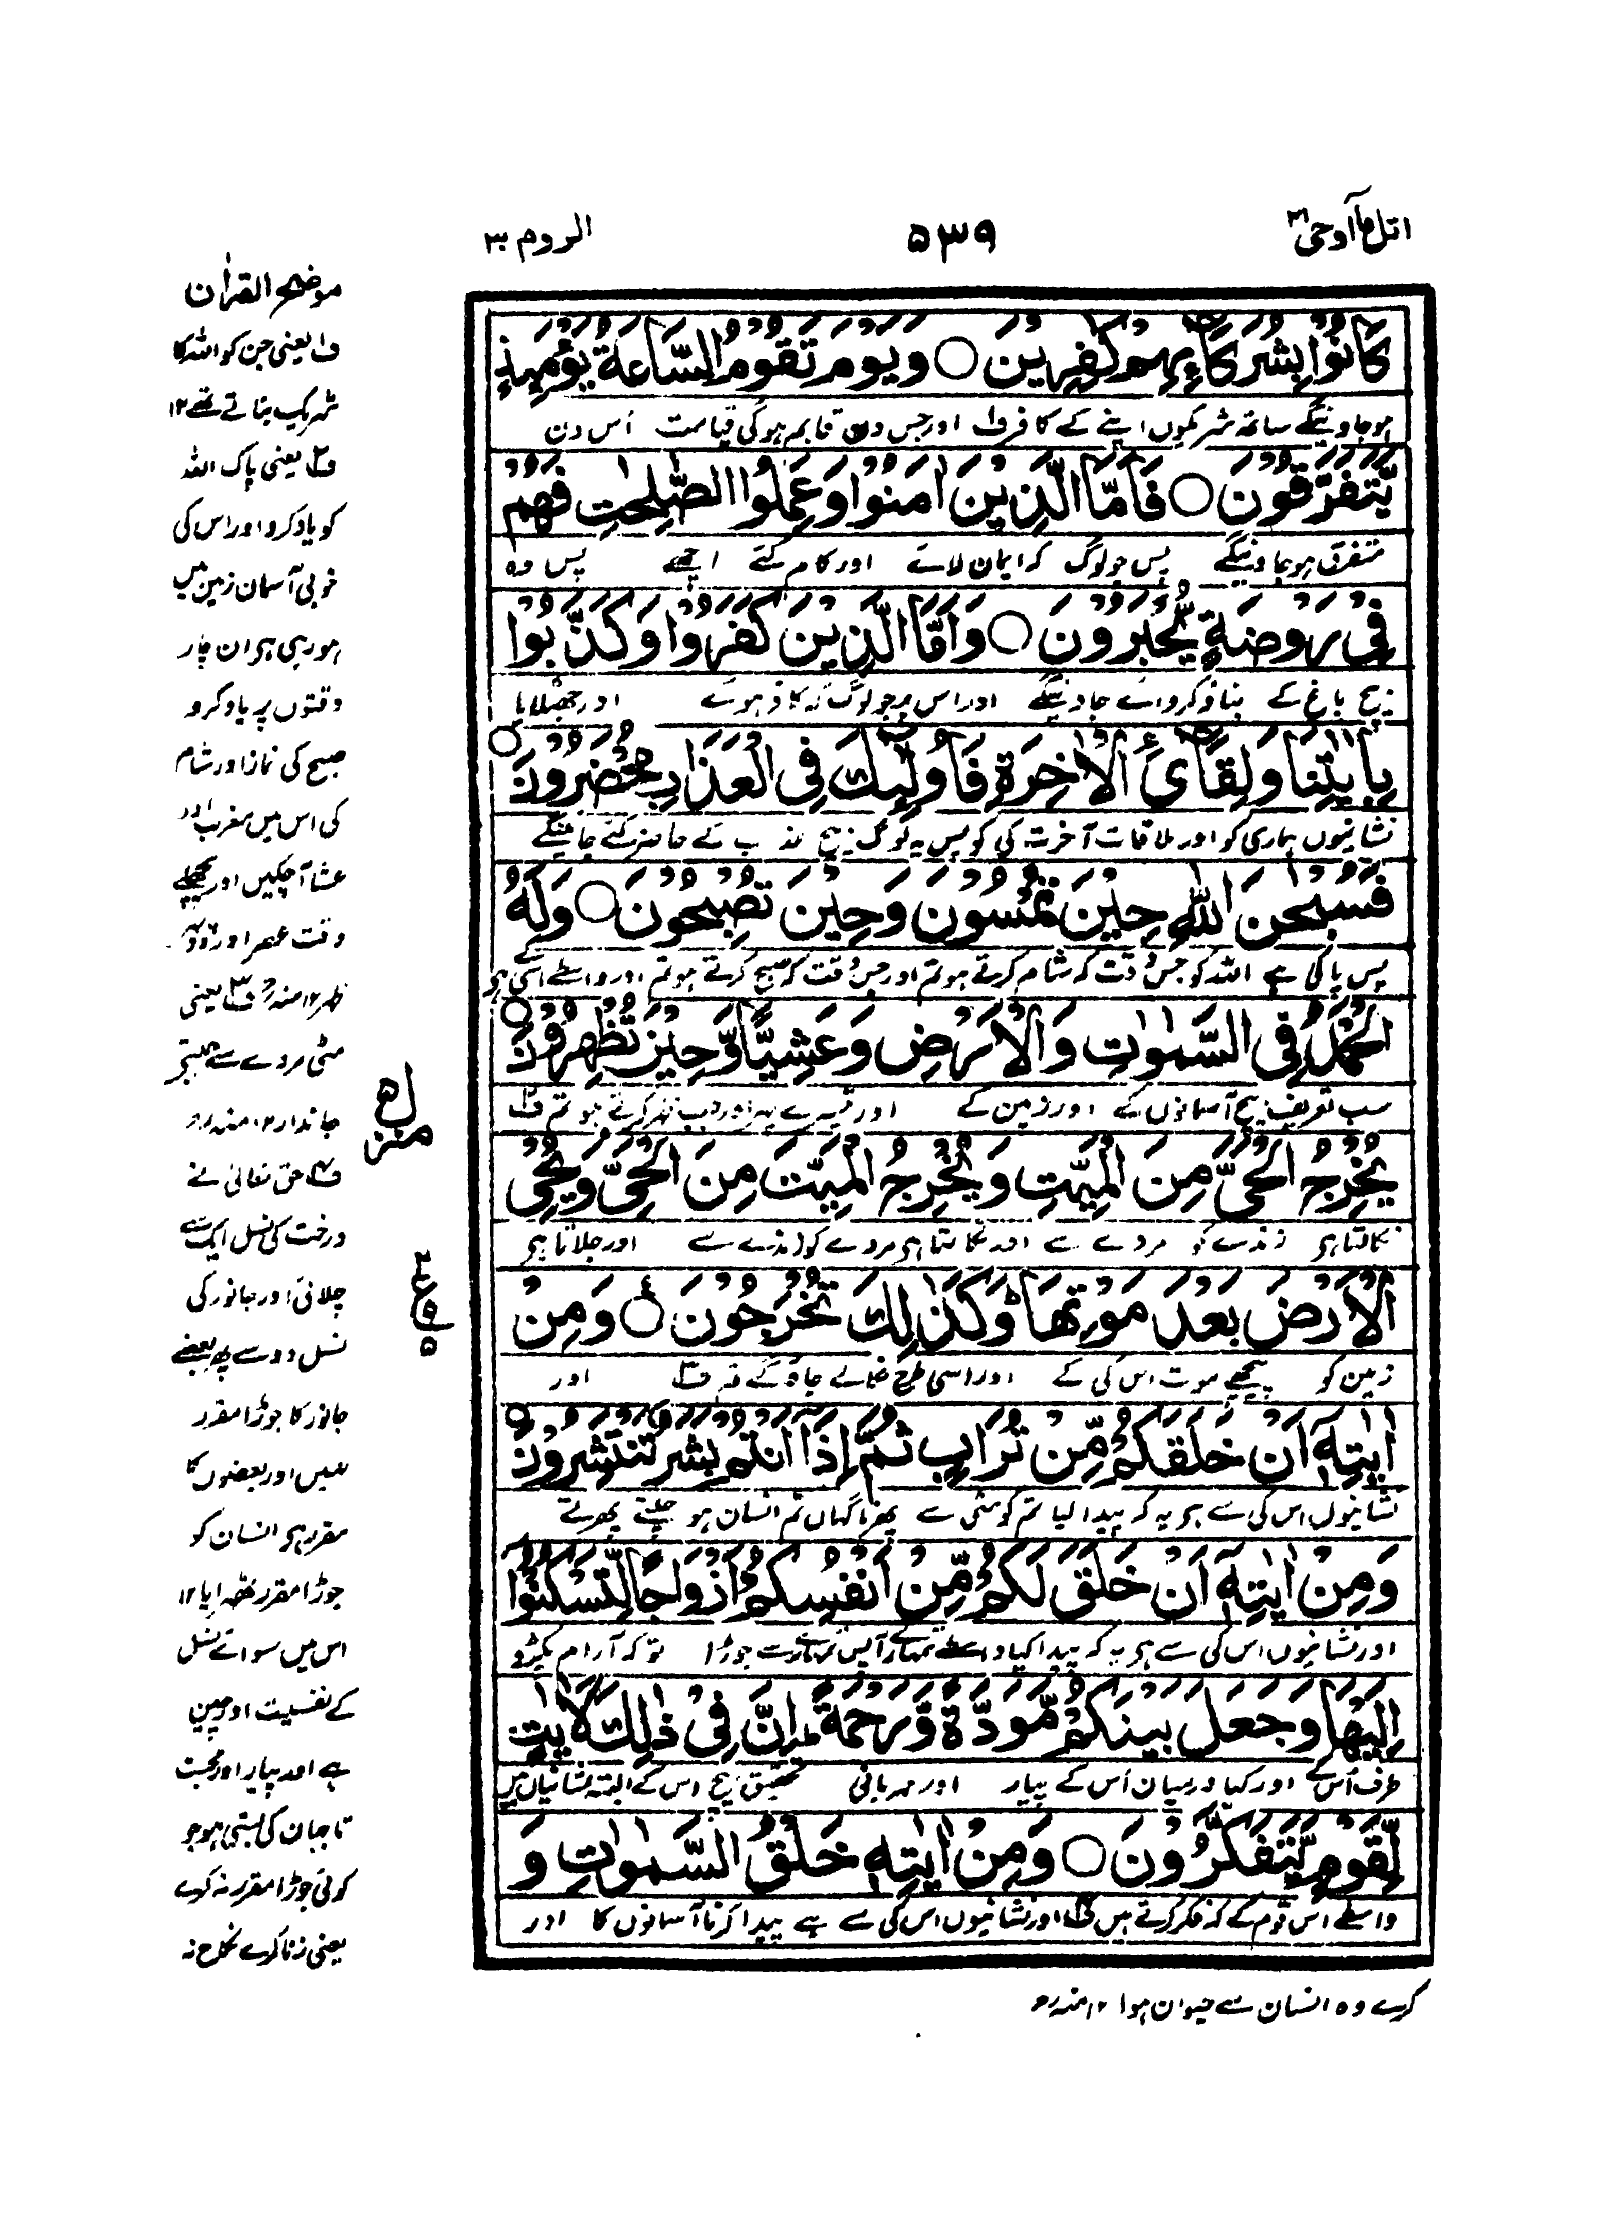 اتل ماۤ اوحی ۲۱
۵۳۹
الروم ۳۰
كَانُوْا بِشُرَكَآئِهِمْ كٰفِرِيْنَ ○ وَيَوْمَ تَقُوْمُ السَّاعَةُ يَوْمَئِذٍ
ہو جاوینگے ساتھ شریکوں اپنے کے کافر ف۱ اور جس دن قایم ہو گی قیامت اُس دن
يَّتَفَرَّقُوْنَ ○ فَاَمَّا الَّذِيْنَ اٰمَنُوْا وَعَمِلُوا الصّٰلِحٰتِ فَهُمْ
متفرق ہو جاوینگے پس جو لوگ کہ ایمان لائے اور کام کئے اچھے پس وہ
فِيْ رَوْضَةٍ يُّحْبَرُوْنَ ○ وَاَمَّا الَّذِيْنَ كَفَرُوْا وَكَذَّبُوْا
بیچ باغ کے بناؤ کروائے جاوینگے اور اس پر جو لوگ کہ کافر ہوے اور جھٹلایا
بِاٰيٰتِنَا وَلِقَآئِ الْاٰخِرَةِ فَاُولٰٓئِكَ فِي الْعَذَابِ مُحْضَرُوْنَ ○
نشانیوں ہماری کو اور ملاقات آخرت کی کو پس یہ لوگ بیچ عذاب کے حاضر کئے جاینگے
فَسُبْحٰنَ اللّٰهِ حِيْنَ تُمْسُوْنَ وَحِيْنَ تُصْبِحُوْنَ ○ وَلَهُ
پس پاکی ہے اللہ کو جس وقت کہ شام کرتے ہو تم اور جس وقت کہ صبح کرتے ہو تم اور واسطے اسی کے ہی
الْحَمْدُ فِي السَّمٰوٰتِ وَالْاَرْضِ وَعَشِيًّا وَّحِيْنَ تُظْهِرُوْنَ ○
سب تعریف بیچ آسمانوں کے اور زمین کے اور تیسرے پہر اور جب ظہر کرتے ہو تم ف۲
يُخْرِجُ الْحَيَّ مِنَ الْمَيِّتِ وَيُخْرِجُ الْمَيِّتَ مِنَ الْحَيِّ وَيُحْيِ
نکالتا ہی زندے کو مردے سے اور نکالتا ہی مردے کو زندے سے اور جلاتا ہی
الْاَرْضَ بَعْدَ مَوْتِهَا ؕ وَكَذٰلِكَ تُخْرَجُوْنَ ○ ع وَمِنْ
زمین کو پیچھے موت اس کی کے اور اسی طرح نکالے جاؤ گے تم ف۳ اور
اٰيٰتِهٖٓ اَنْ خَلَقَكُمْ مِّنْ تُرَابٍ ثُمَّ اِذَآ اَنْتُمْ بَشَرٌ تَنْتَشِرُوْنَ ○
نشانیوں اس کی سے ہی یہ کہ پیدا کیا تم کو مٹی سے پھر ناگہاں تم انسان ہو چلتے پھرتے
وَمِنْ اٰيٰتِهٖٓ اَنْ خَلَقَ لَكُمْ مِّنْ اَنْفُسِكُمْ اَزْوَاجًا لِّتَسْكُنُوْٓا
اور نشانیوں اس کی سے ہی یہ کہ پیدا کیا واسطے تمہارے آپس تمہارے سے جوڑا تو کہ آرام پکڑو
اِلَيْهَا وَجَعَلَ بَيْنَكُمْ مَّوَدَّةً وَّرَحْمَةً ؕ اِنَّ فِيْ ذٰلِكَ لَاٰيٰتٍ
طرف اُس کے اور کیا درمیان اُس کے پیار اور مہربانی تحقیق بیچ اس کے البتہ نشانیاں ہیں
لِّقَوْمٍ يَّتَفَكَّرُوْنَ ○ وَمِنْ اٰيٰتِهٖ خَلْقُ السَّمٰوٰتِ وَ
واسطے اس قوم کے کہ فکر کرتے ہیں ف۴ اور نشانیوں اس کی سے ہے پیدا کرنا آسمانوں کا اور
موضح القرآن
ف۱ یعنی جن کو اللہ کا
شریک بناتے تھے ۱۲
ف۲ یعنی پاک اللہ
کو یاد کرو اور اس کی
خوبی آسمان زمین میں
ہو رہی ہی ان چار
وقتوں پر یاد کرو
صبح کی نماز اور شام
کی اس میں مغرب اور
عشا آ چکیں اور پچھلے
وقت عصر اور دوپہر
ظہر ۱۲ منہ رح ف۳ یعنی
مٹی مردے سے جیتے
جاندار ۱۲ منہ رح
ف۴ حق تعالیٰ نے
درخت کی نسل ایک سے
چلائی اور جانور کی
نسل دو سے پھر بعضے
جانور کا جوڑا مقرر
نہیں اور بعضوں کا
مقرر ہی انسان کو
جوڑا مقرر ٹھہرایا ۱۲
اس میں سوائے نسل
کے نفسیت اور چین
ہے اور پیار اور محبت
تا جہان کی بستی ہو جو
کوئی جوڑا مقرر نہ کرے
یعنی زنا کرے نکاح نہ
منزل ۵
ع ۵
کرے وہ انسان سے حیوان ہوا ۱۲ منہ رح